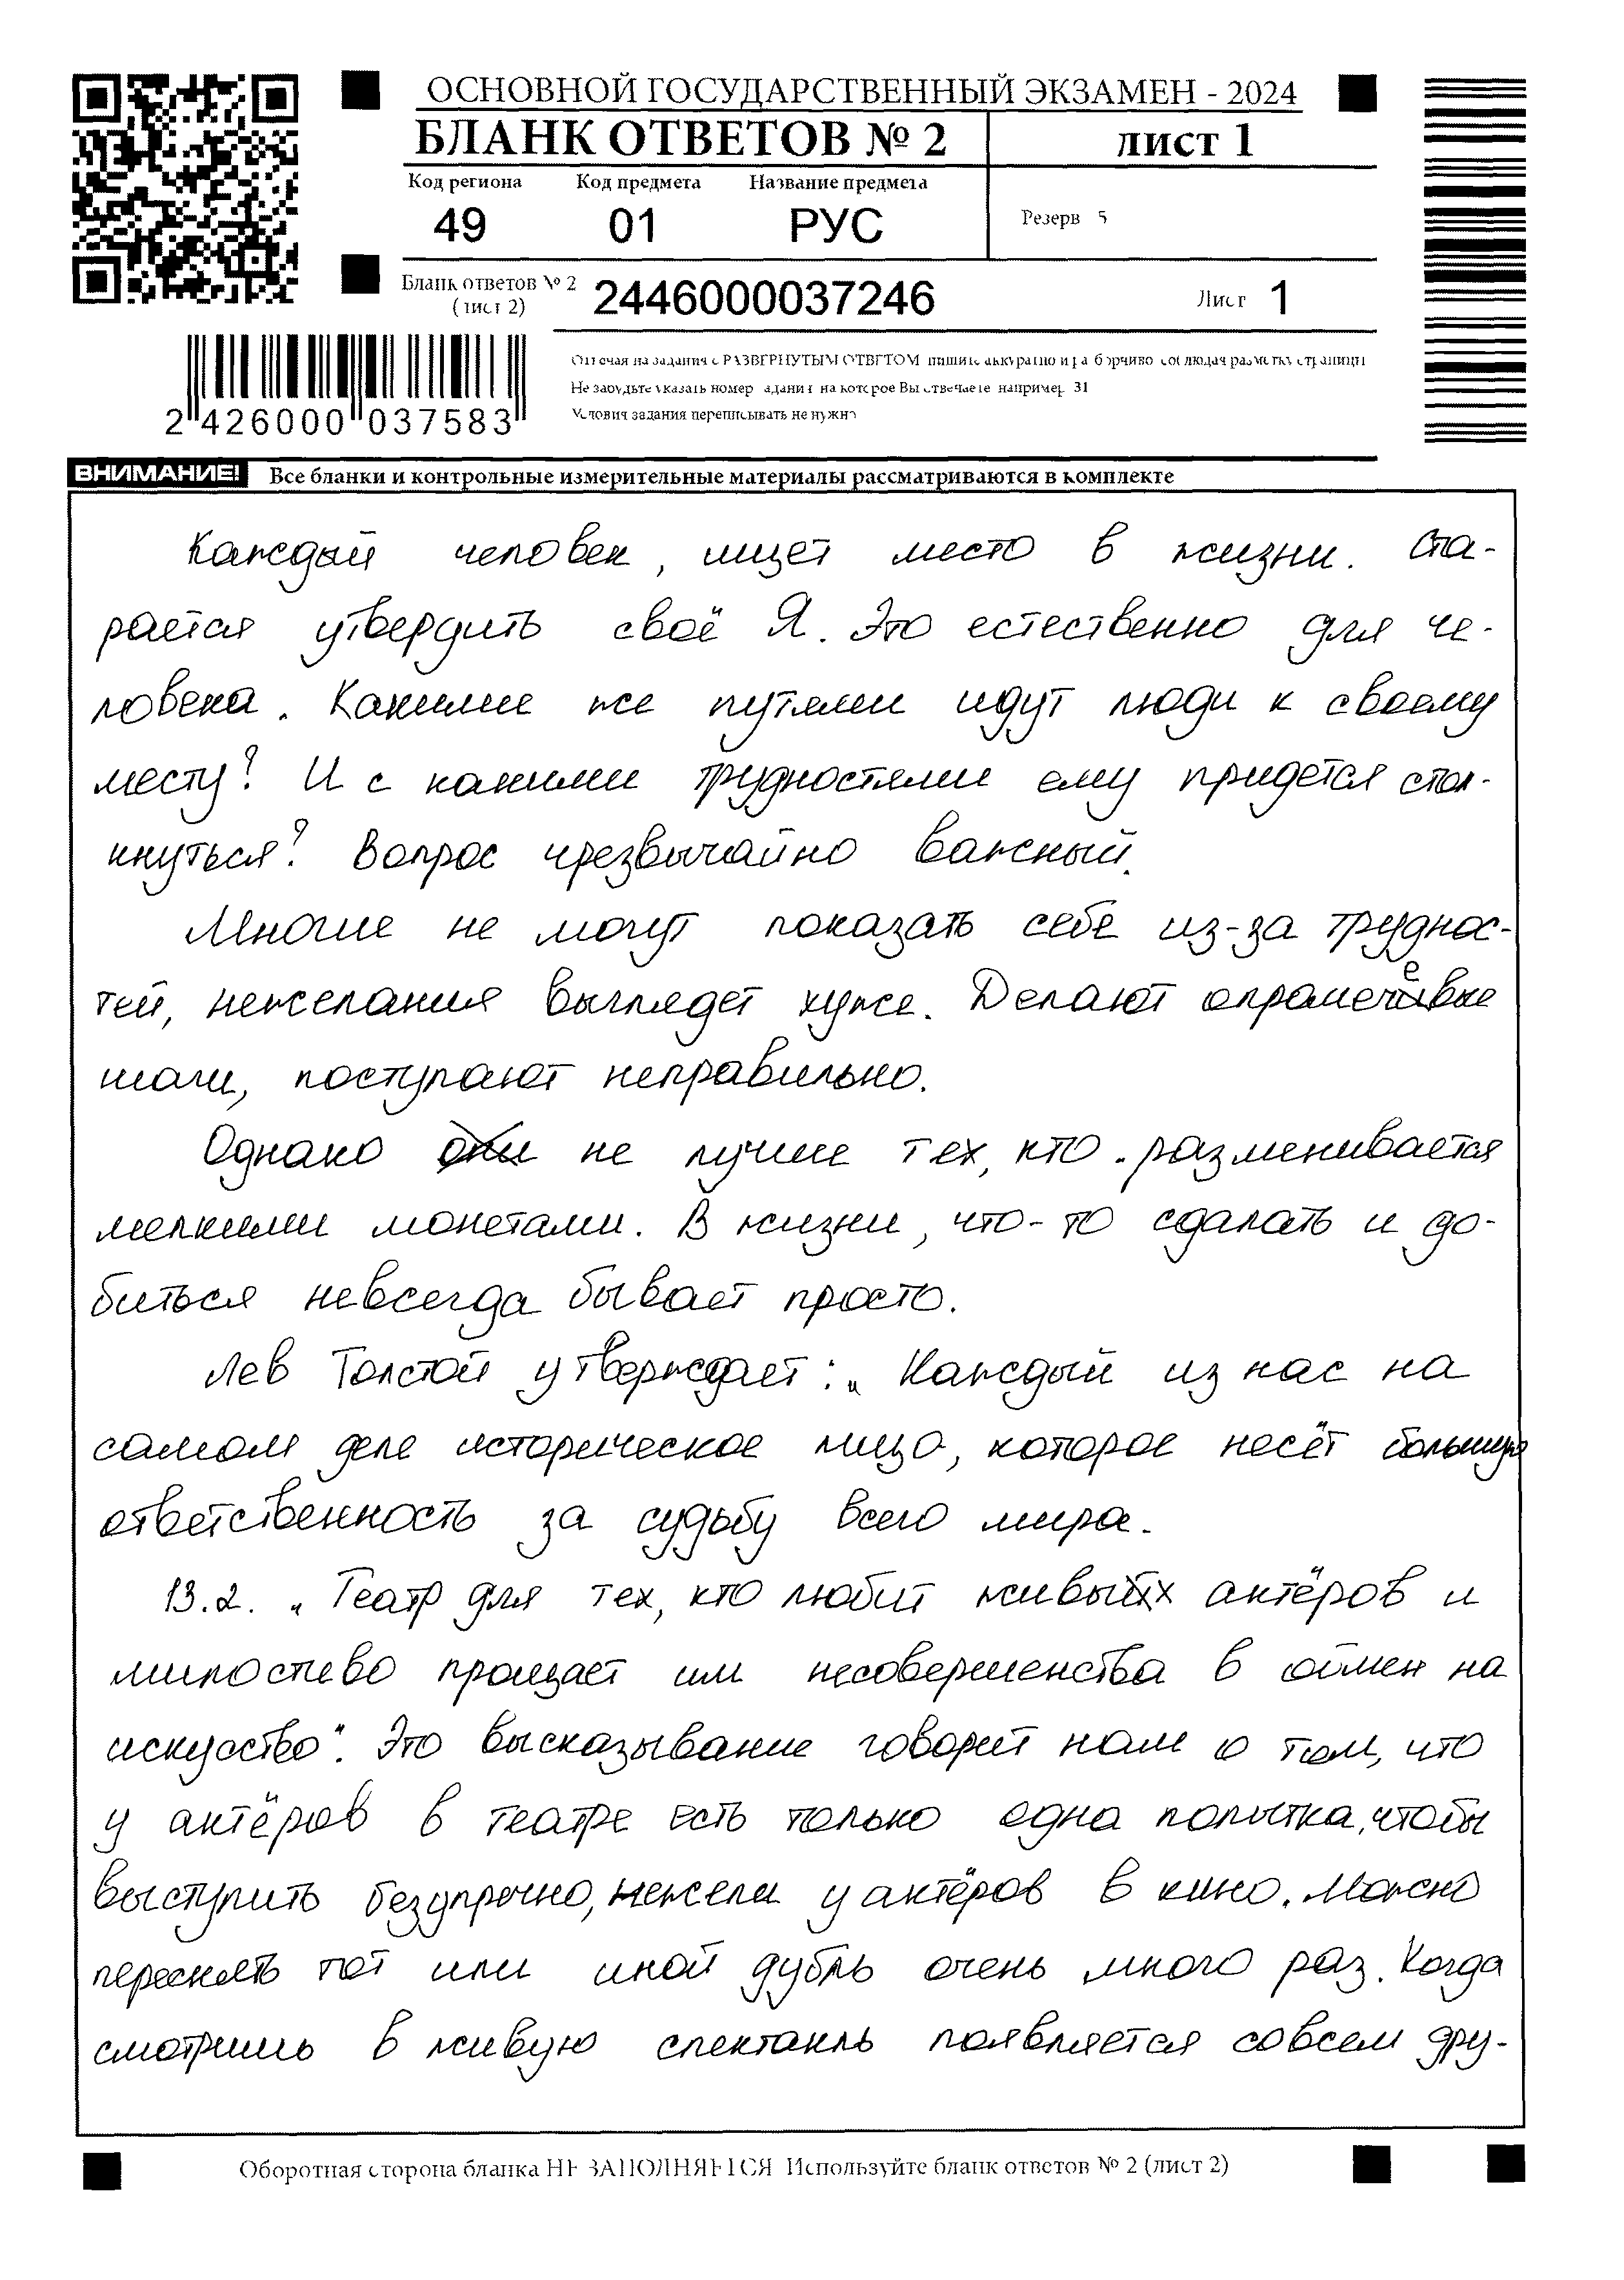 ОСНОВНОЙ ГОСУДАРСТВЕННЫЙ ЭКЗАМЕН - 2024
БЛАНК ОТВЕТОВ № 2
ЛИСТ 1
Код региона Код предмета Название предмета
49 01 РУС
Резерв 5
Бланк ответов № 2
(лист 2)
2446000037246
Лист 1
2 426000 037583
Отвечая на задания с РАЗВЕРНУТЫМ ОТВЕТОМ пишите аккуратно и разборчиво соблюдая разметку страницы
Не забудьте указать номер задания на которое Вы отвечаете например 31
Условия задания переписывать не нужно
ВНИМАНИЕ! Все бланки и контрольные измерительные материалы рассматриваются в комплекте
Каждый человек, ищет место в жизни. Ста-
рается утвердить своё Я. Это естественно для че-
ловека. Какими же путями идут люди к своему
месту? И с какими трудностями ему придется стол-
кнуться? Вопрос чрезвычайно важный.
Многие не могут показать себе из-за труднос-
тей, нежелания выглядет хуже. Делают опрамечевые
шаги, поступают неправильно.
Однако они не лучше тех, кто разменивается
мелкими монетами. В жизни, что-то сдалать и до-
биться невсегда бывает просто.
Лев Толстой утверждает: „Каждый из нас на
самом деле историческое лицо, которое несёт большую
ответственность за судьбу всего мира.
13.2. „Театр для тех, кто любит живых актёров и
милостиво прощает им несовершенства в обмен на
искусство". Это высказывание говорит нам о том, что
у актёров в театре есть только одна попытка, чтобы
выступить безупрочно, нежели у актёров в кино. Можно
переснять тот или иной дубль очень много раз. Когда
смотришь в живую спектакль появляется совсем дру-
Оборотная сторона бланка НЕ ЗАПОЛНЯЕТСЯ Используйте бланк ответов № 2 (лист 2)